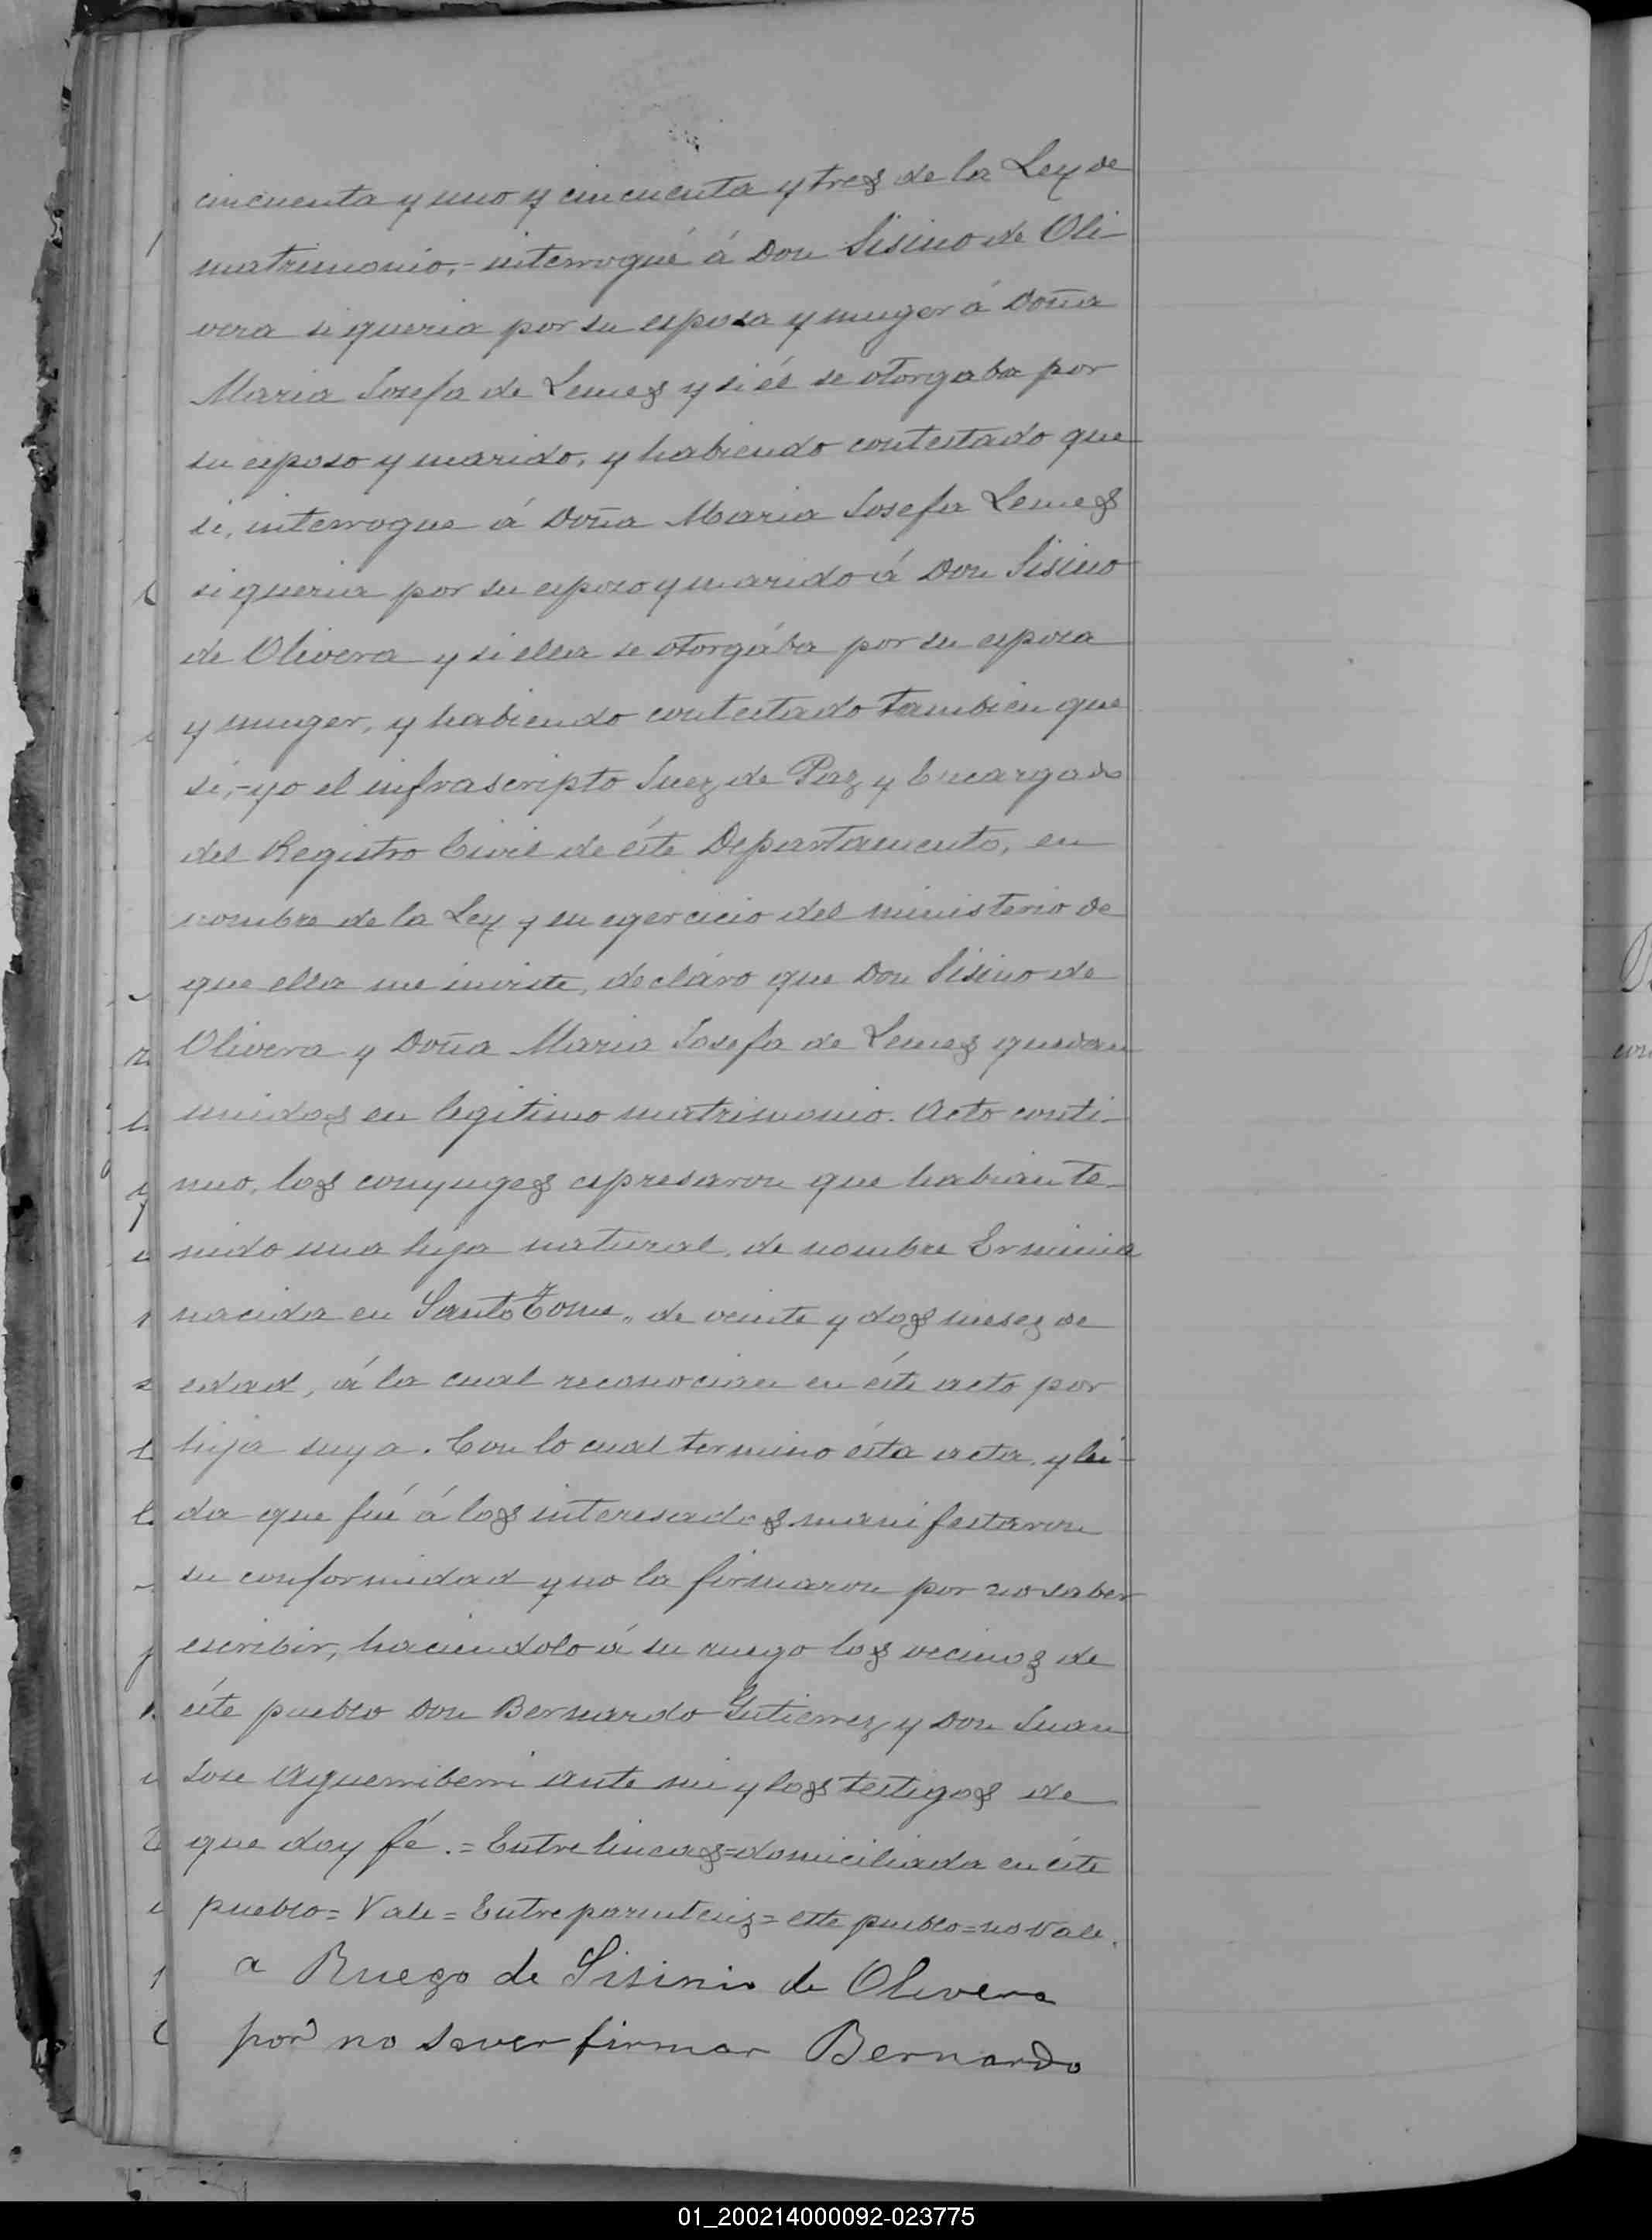 cincuenta y uno y cincuenta y tres de la Ley de
matrimonio,- interrogué á Don Sisino de Oli-
vera si queria por su esposa y muger á Doña
Maria Josefa de Lemes y si él se otorgaba por
su esposo y marido, y habiendo contestado que
si, interrogue á Doña Maria Josefa Lemes
si queria por su esposo y marido á Don Sisino
de Olivera y si ella se otorgába por su esposa
y muger, y habiendo contestado tambien que
sí,-yo el infrascripto Juez de Paz y Encargado
del Registro Civil de éste Departamento, en
nombre de la Ley y en egercicio del ministerio de
que ella me inviste, decláro que Don Sisino de
Olivera y Doña Maria Josefa de Lemes quedan
unidos en legitimo matrimonio. Acto conti-
nuo, los conyuges espresaron que habian te-
nido una hija natural, de nombre Erminia
nacida en Santo Tome, de veinte y dos meses de
edad, á la cual reconocian en éste acto por
hija suya. Con lo cual termino ésta acta, y lei-
da que fué á los interesados manifestaron
su conformidad y no la firmaron por no saber
escribir, haciendolo á su ruego los vecinos de
éste pueblo Don Bernardo Gutierrez y Don Juan
Jose Aguerriberri ante mi y los testigos de
que doy fé.=Entre lineas=domiciliada en éste
pueblo=Vale=Entre parentesis=este pueblo=no vale.
a Ruego de Sisinio de Olivera
por no saver firmar Bernardo
01_200214000092-023775